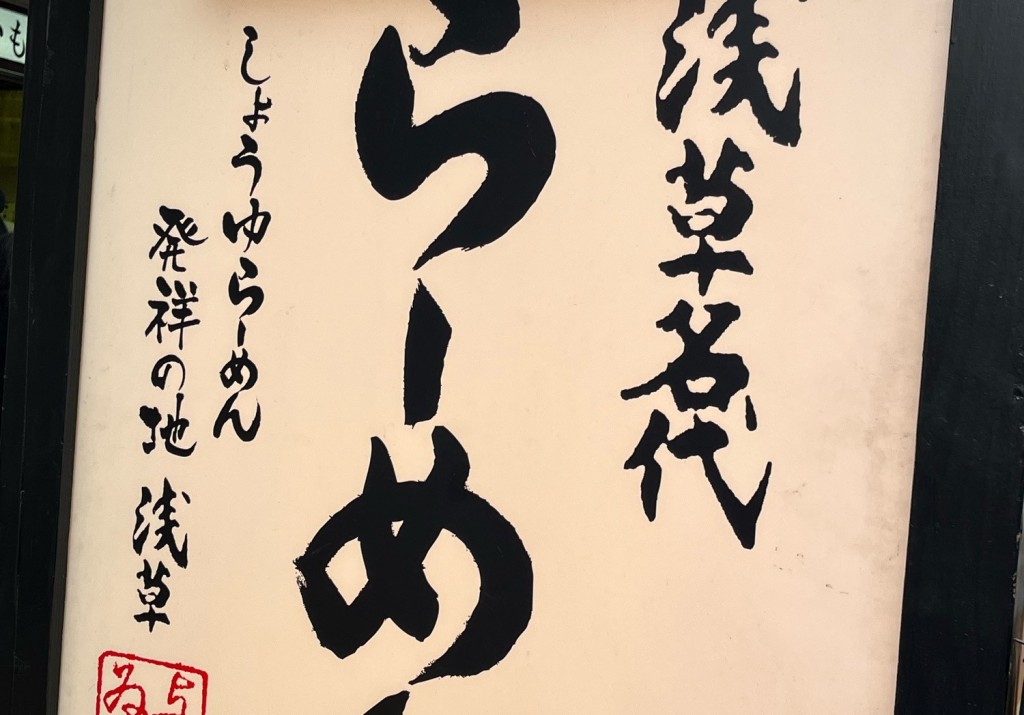 浅草名代
らーめ
しょうゆらーめん
発祥の地 浅草